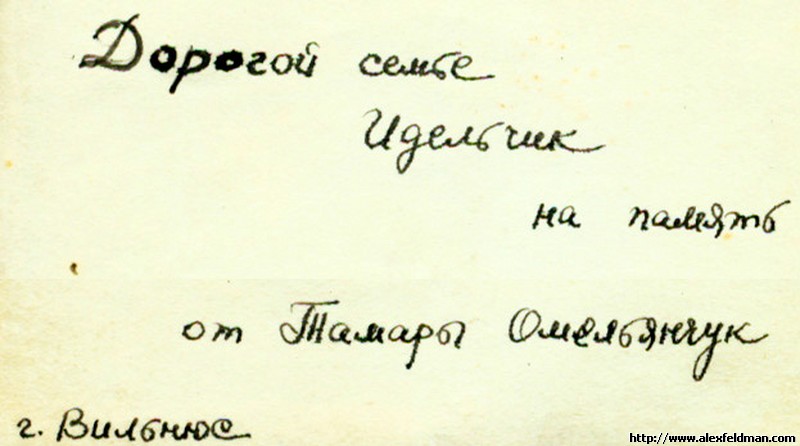 Дорогой семье
Идельчик
на память
от Тамары Омельянчук
г. Вильнюс
http://www.alexfeldman.com